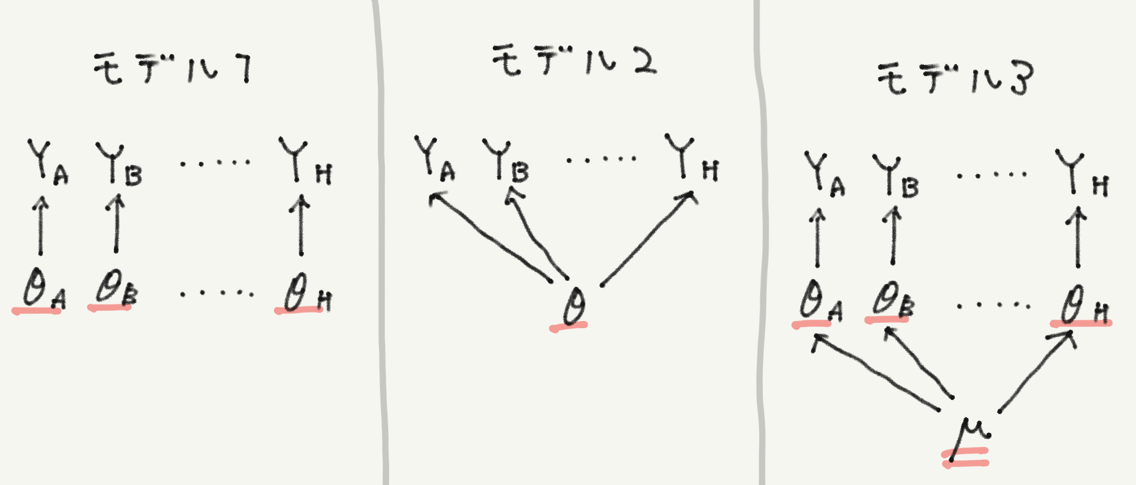 モデル1
Y_A Y_B ..... Y_H
θ_A θ_B ..... θ_H
モデル2
Y_A Y_B ..... Y_H
θ
モデル3
Y_A Y_B ..... Y_H
θ_A θ_B ..... θ_H
μ